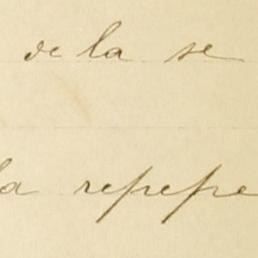 de la se
la repepe